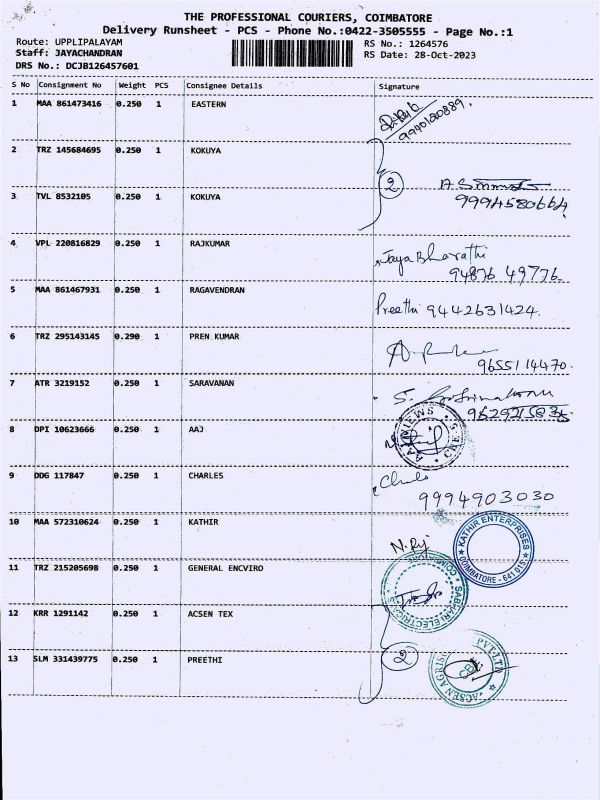 THE PROFESSIONAL COURIERS, COIMBATORE
Delivery Runsheet - PCS - Phone No.:0422-3505555 - Page No.:1
Route: UPPLIPALAYAM
Staff: JAYACHANDRAN
DRS No.: DCJB126457601
RS No.: 1264576
RS Date: 28-Oct-2023
S No Consignment No Weight PCS Consignee Details Signature
1 MAA 861473416 0.250 1 EASTERN
9940180889.
2 TRZ 145684695 0.250 1 KOKUYA
2
3 TVL 8532105 0.250 1 KOKUYA
9994580664
4 VPL 220816829 0.250 1 RAJKUMAR
Jaya Bharathi
94876 49776
5 MAA 861467931 0.250 1 RAGAVENDRAN
Preethi 9442631424.
6 TRZ 295143145 0.290 1 PREN KUMAR
9655114470.
7 ATR 3219152 0.250 1 SARAVANAN
8 DPI 10623666 0.250 1 AAJ
9 DDG 117847 0.250 1 CHARLES
9994903030
10 MAA 572310624 0.250 1 KATHIR
KATHIR ENTERPRISES
COIMBATORE - 641 015
11 TRZ 215205698 0.250 1 GENERAL ENCVIRO
SABHARI ELECTRIC
12 KRR 1291142 0.250 1 ACSEN TEX
13 SLM 331439775 0.250 1 PREETHI
2
ACSEN AGRIS PVT.LTD
CBE